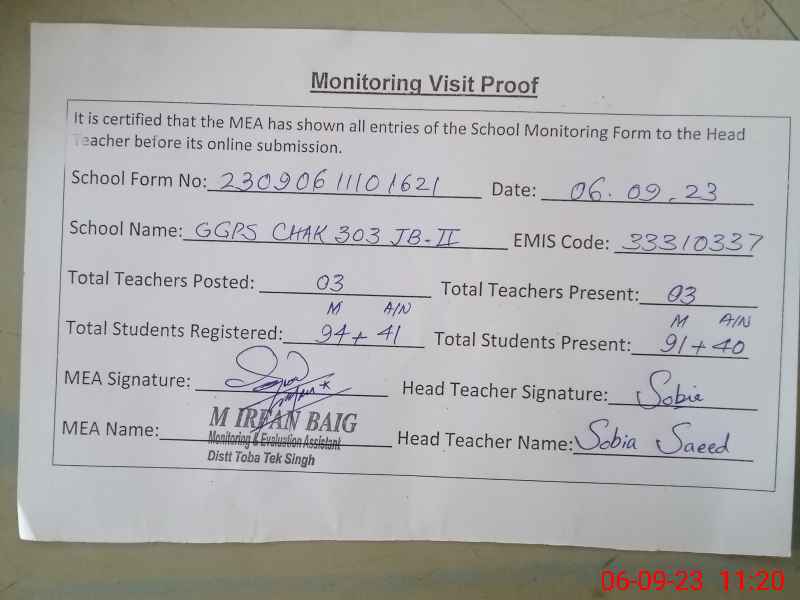 Monitoring Visit Proof
It is certified that the MEA has shown all entries of the School Monitoring Form to the Head
Teacher before its online submission.
School Form No: 23090611101621 Date: 06.09.23
School Name: GGPS CHAK 303 JB-II EMIS Code: 33310337
Total Teachers Posted: 03 Total Teachers Present: 03
M A/N M A/N
Total Students Registered: 94+41 Total Students Present: 91+40
MEA Signature: Head Teacher Signature: Sobia
MEA Name: M IRFAN BAIG Head Teacher Name: Sobia Saeed
Monitoring & Evaluation Assistant
Distt Toba Tek Singh
06-09-23 11:20